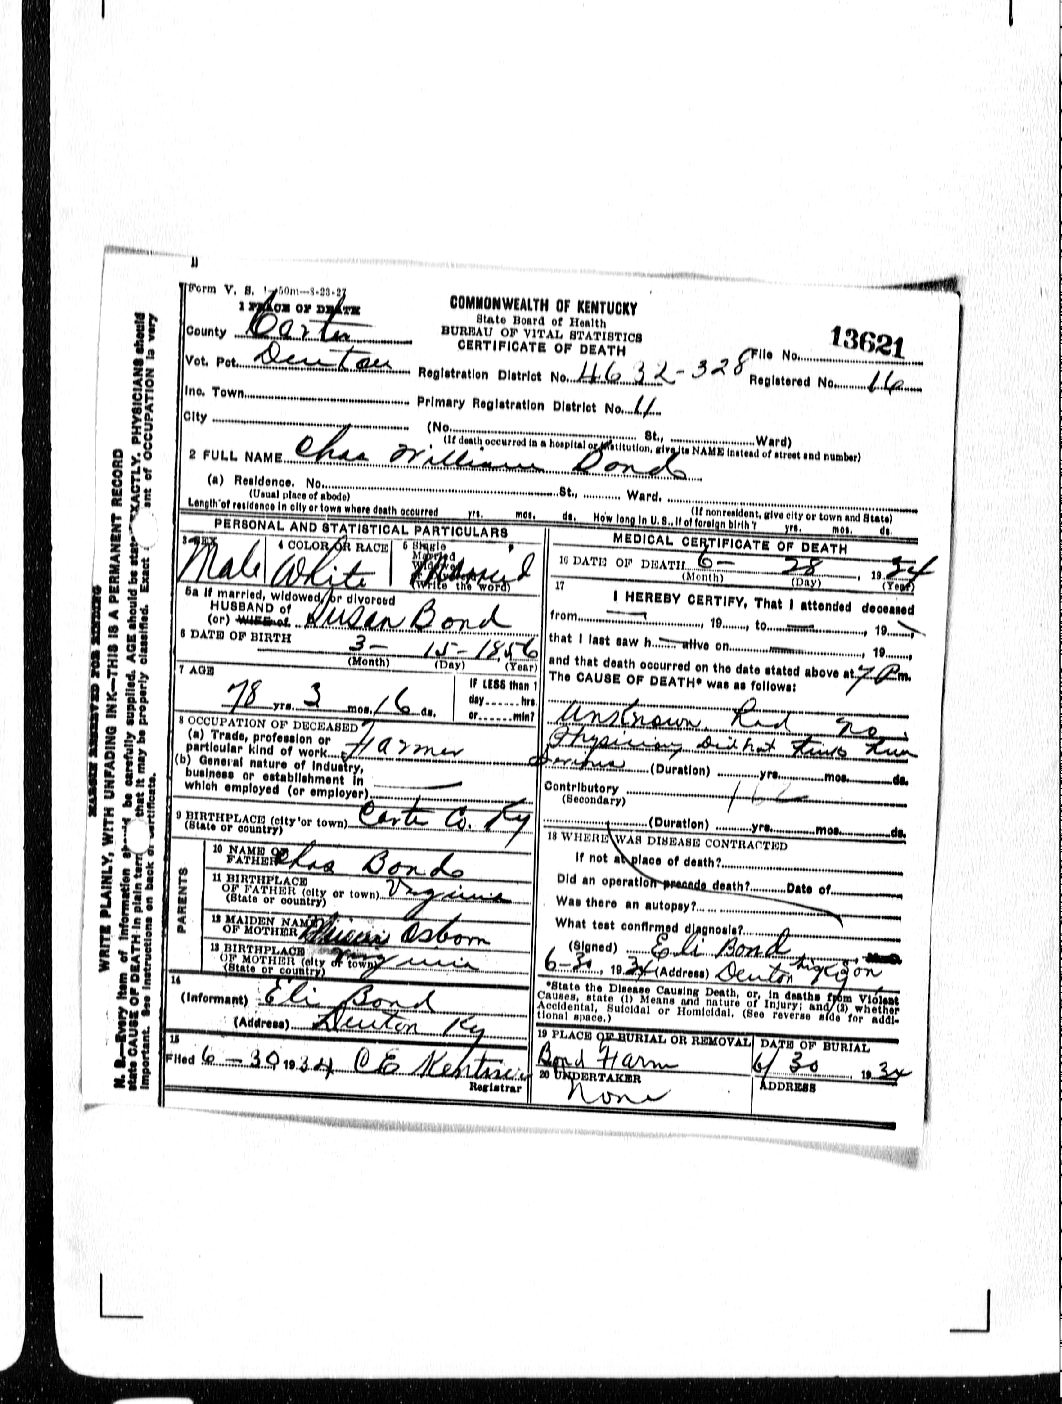 Form V. S. 1-50m-8-23-27
1 PLACE OF DEATH
County Carter
Vot. Pct. Denton
Inc. Town
City
COMMONWEALTH OF KENTUCKY
State Board of Health
BUREAU OF VITAL STATISTICS
CERTIFICATE OF DEATH
13621
File No.
Registration District No. 4632-328
Registered No. 16
Primary Registration District No. 11
(No. St., Ward)
(If death occurred in a hospital or institution, give its NAME instead of street and number)
2 FULL NAME Chas William Bond
(a) Residence. No. St., Ward.
(Usual place of abode)
(If nonresident, give city or town and State)
Length of residence in city or town where death occurred yrs. mos. ds. How long in U. S., if of foreign birth? yrs. mos. ds.
PERSONAL AND STATISTICAL PARTICULARS
3 SEX
Male
4 COLOR OR RACE
White
5 Single
Married
Widowed
(Write the word)
5a If married, widowed, or divorced
HUSBAND of
(or) WIFE of Susan Bond
6 DATE OF BIRTH
3- 15-1856
(Month) (Day) (Year)
7 AGE
78 yrs. 3 mos. 16 ds.
IF LESS than 1
day hrs
or min?
8 OCCUPATION OF DECEASED
(a) Trade, profession or
particular kind of work Farmer
(b) General nature of industry,
business or establishment in
which employed (or employer)
9 BIRTHPLACE (city or town) Carter Co. Ky
(State or country)
PARENTS
10 NAME OF
FATHER Chas Bond
11 BIRTHPLACE
OF FATHER (city or town) Virginia
(State or country)
12 MAIDEN NAME
OF MOTHER Osborn
13 BIRTHPLACE
OF MOTHER (city or town) Virginia
(State or country)
14
(Informant) Eli Bond
(Address) Denton Ky
15
Filed 6-30 1934 C E
Registrar
MEDICAL CERTIFICATE OF DEATH
16 DATE OF DEATH 6- 28, 1934
(Month) (Day) (Year)
17
I HEREBY CERTIFY, That I attended deceased
from 19, to , 19
that I last saw h alive on , 19
and that death occurred on the date stated above at 7 P m.
The CAUSE OF DEATH* was as follows:
Unknown Had no
Physician Did not
(Duration) yrs. mos. ds.
Contributory
(Secondary)
(Duration) yrs. mos. ds.
18 WHERE WAS DISEASE CONTRACTED
if not at place of death?
Did an operation precede death? Date of
Was there an autopsy?
What test confirmed diagnosis?
(Signed) Eli Bond
6-30, 1934 (Address) Denton
*State the Disease Causing Death, or, in deaths from Violent
Causes, state (1) Means and nature of Injury; and (2) whether
Accidental, Suicidal or Homicidal. (See reverse side for addi-
tional space.)
19 PLACE OF BURIAL OR REMOVAL
Bond Farm
DATE OF BURIAL
6/30 1934
20 UNDERTAKER
None
ADDRESS
MARGIN RESERVED FOR BINDING
WRITE PLAINLY, WITH UNFADING INK—THIS IS A PERMANENT RECORD
N. B.—Every item of information should be carefully supplied. AGE should be stated EXACTLY. PHYSICIANS should
state CAUSE OF DEATH in plain terms that it may be properly classified. Exact statement of OCCUPATION is very
important. See instructions on back of certificate.